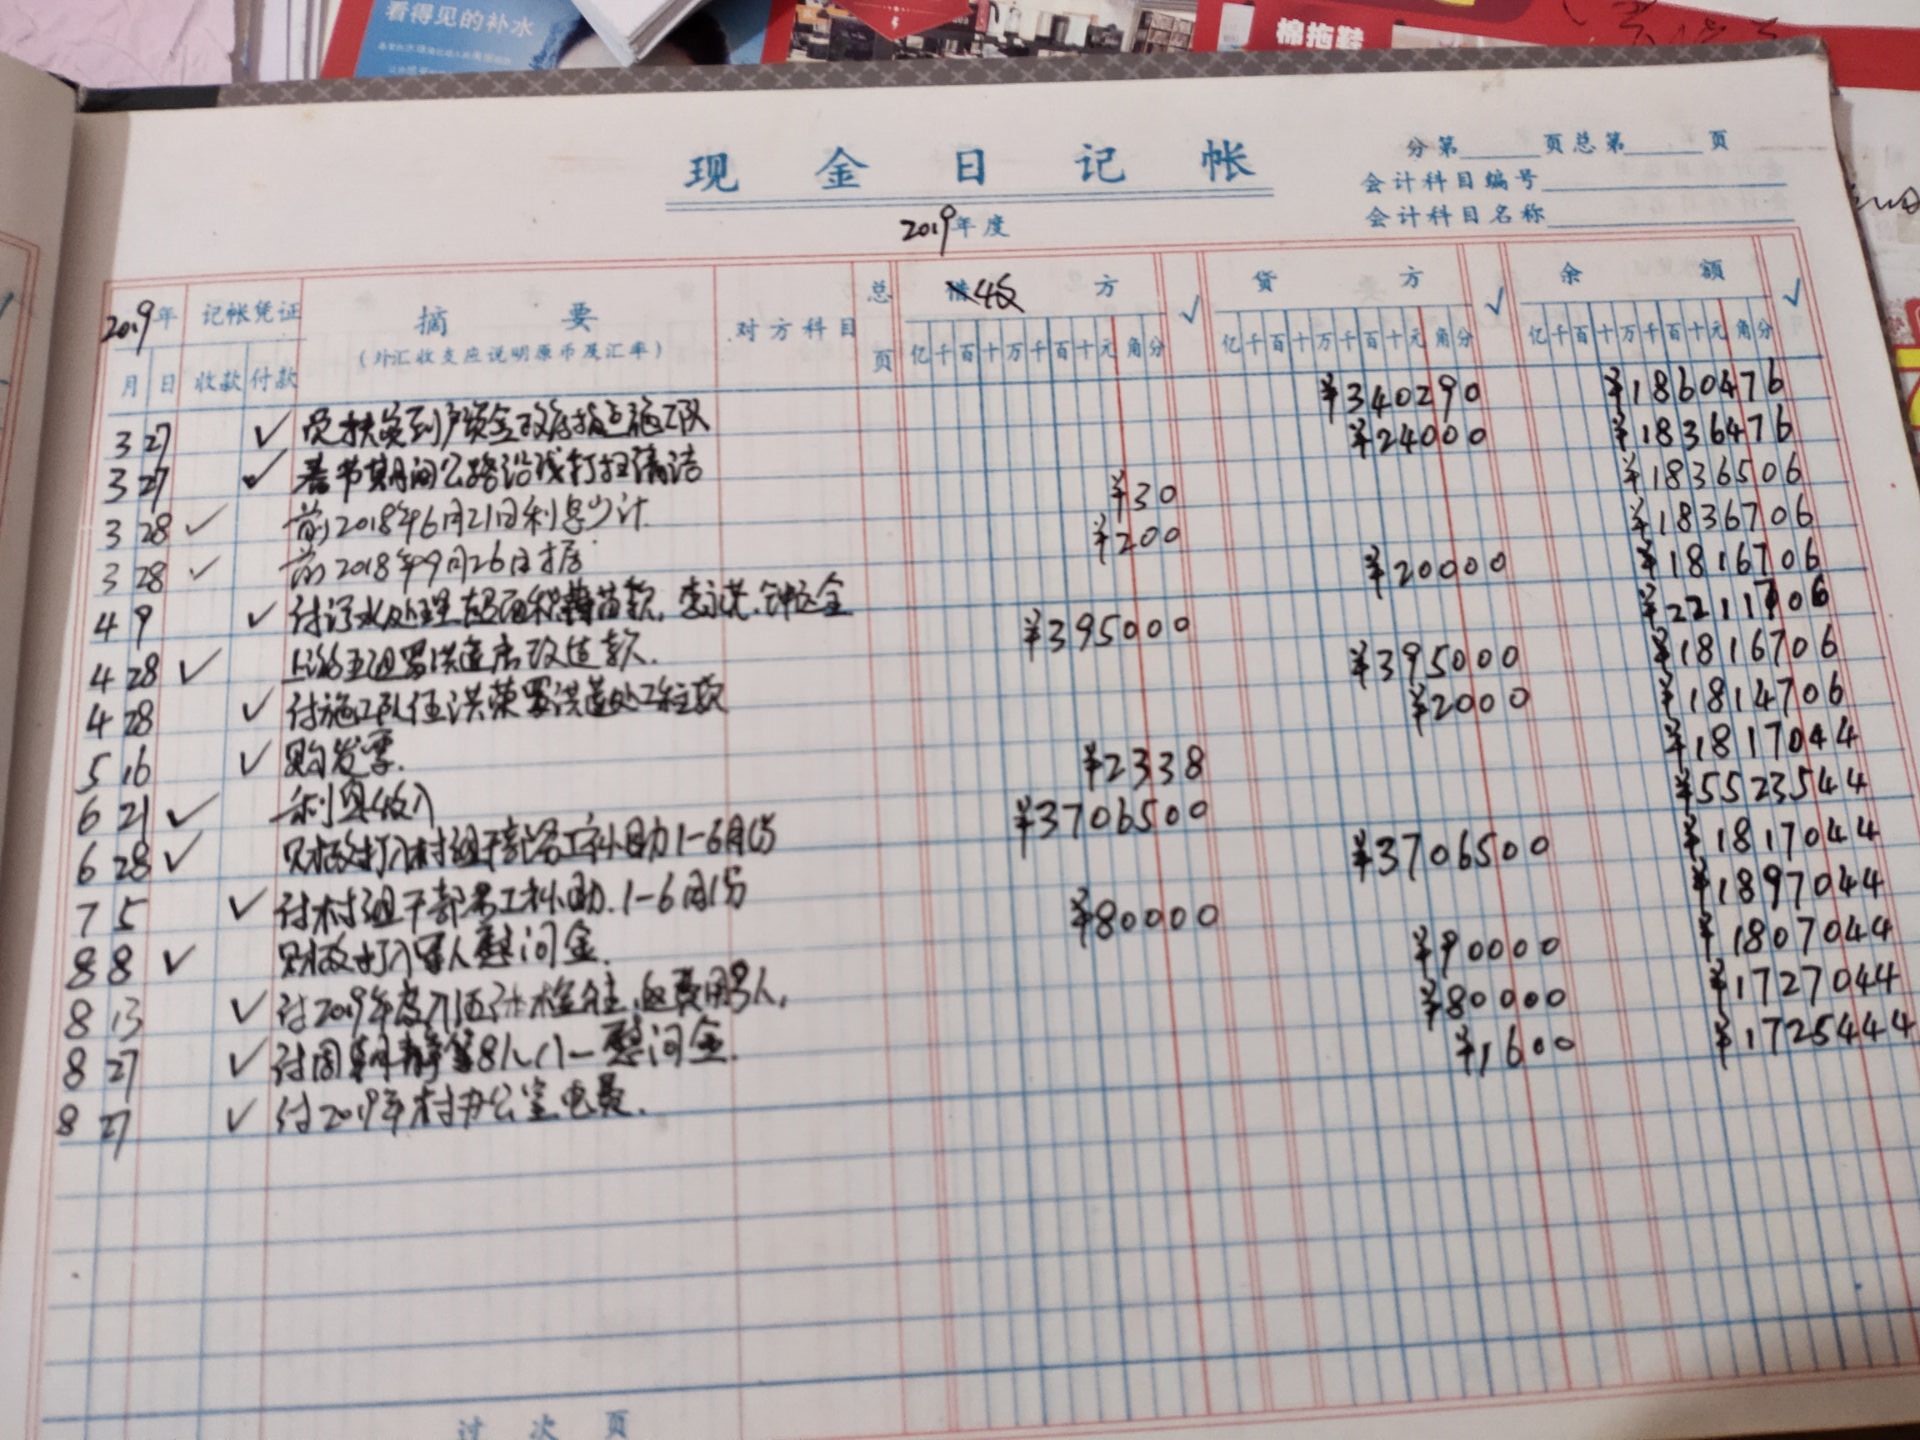 看得见的补水
棉拖鞋
现金日记帐
分第 页总第 页
会计科目编号
会计科目名称
2019年度
2019年 记帐凭证 摘要 对方科目 总页 借收方 √ 贷方 √ 余额 √
(外汇收支应说明原币及汇率)
月 日 收款 付款 亿千百十万千百十元角分 亿千百十万千百十元角分 亿千百十万千百十元角分
3 27 √ 到户资金 施工队 ¥340290 ¥1860476
3 27 √ 春节期间公路沿线打扫清洁 ¥24000 ¥1836476
3 28 √ 前2018年6月21日利息少计 ¥30 ¥1836506
3 28 √ 前2018年9月26日 ¥200 ¥1836706
4 9 √ 付污水处理 苗款. ¥20000 ¥1816706
4 28 √ 五组罗洪莲房改造款. ¥395000 ¥2211706
4 28 √ 付施工队伍洪荣罗洪莲处工程款 ¥395000 ¥1816706
5 16 √ 购发票. ¥2000 ¥1814706
6 21 √ 利息收入 ¥2338 ¥1817044
6 28 √ 财政打入村组干部误工补助1-6月份 ¥3706500 ¥5523544
7 5 √ 付村组干部误工补助.1-6月份 ¥3706500 ¥1817044
8 8 √ 财政打入军人慰问金. ¥80000 ¥1897044
8 13 √ 付2019年度 费用 人. ¥90000 ¥1807044
8 27 √ 付周 等8人八一慰问金. ¥80000 ¥1727044
8 27 √ 付2019年村办公室电费. ¥1600 ¥1725444
过次页